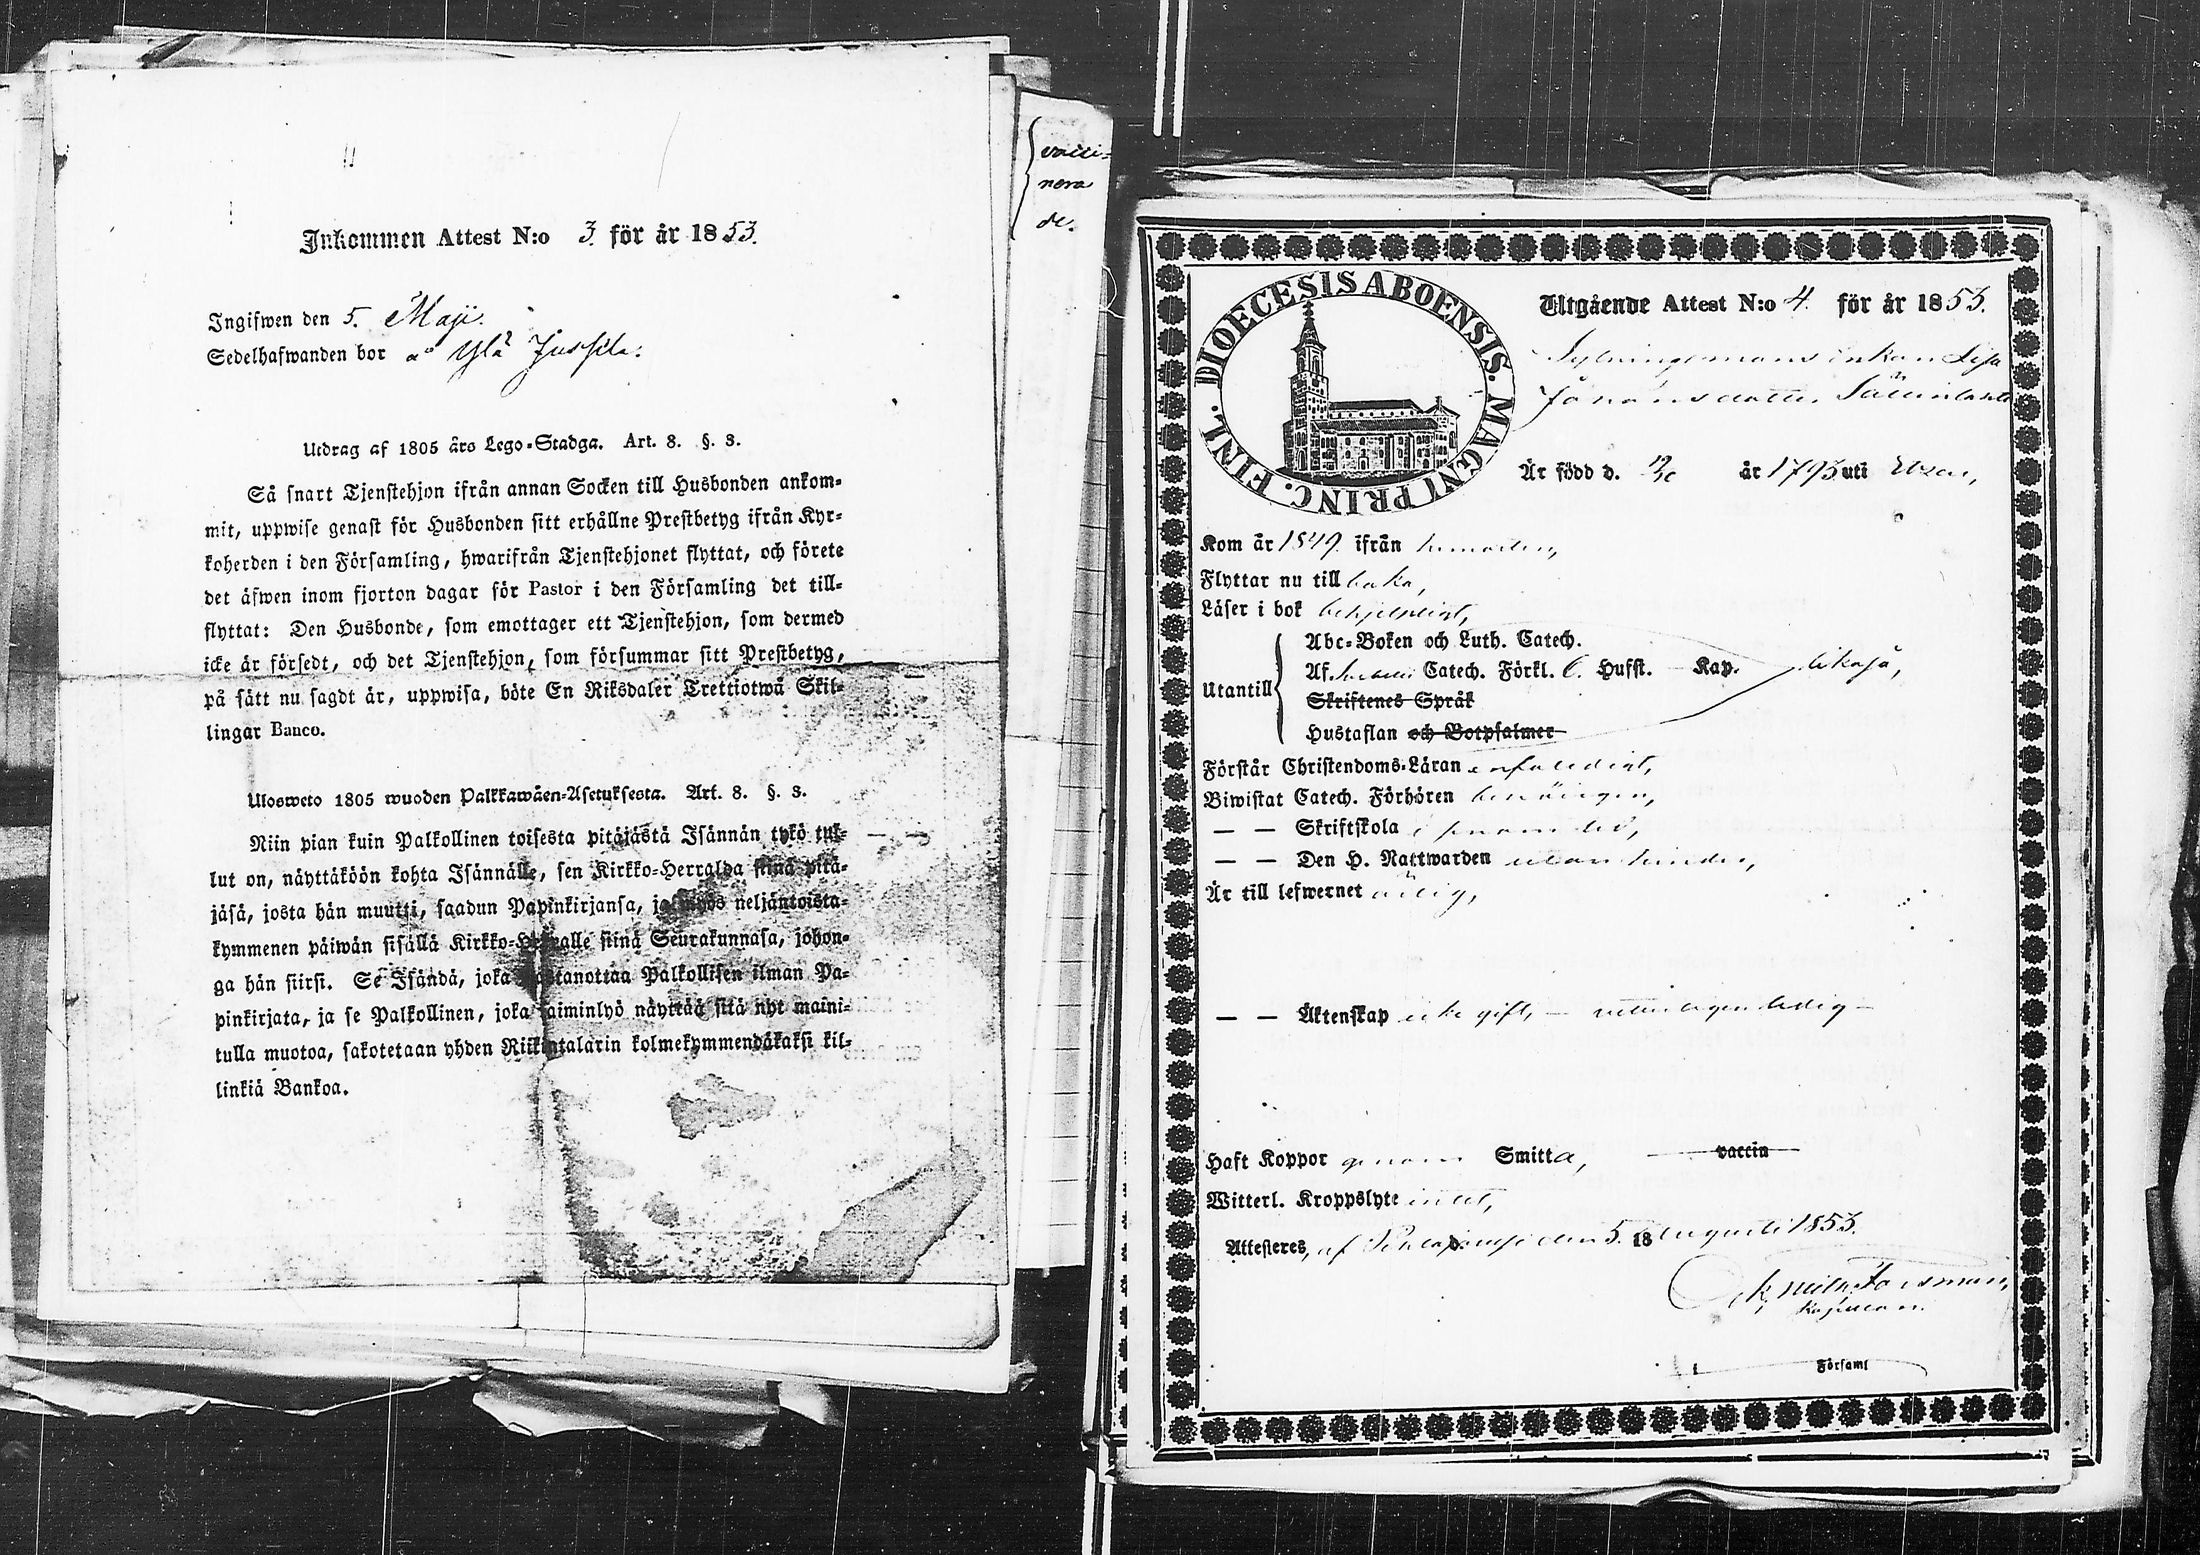 Inkommen Attest N:o 3. för år 1853.
Ingifwen den 5. Maji.
Sedelhafwanden bor å Ylä Jussila.
Utdrag af 1805 års Lego-Stadga. Art. 8. §. 8.
Så snart Tjenstehjon ifrån annan Socken till Husbonden ankom-
mit, uppwise genast för Husbonden sitt erhållne Prestbetyg ifrån Kyr-
koherden i den Församling, hwarifrån Tjenstehjonet flyttat, och förete
det äfwen inom fjorton dagar för Pastor i den Församling det till-
flyttat: Den Husbonde, som emottager ett Tjenstehjon, som dermed
icke är försedt, och det Tjenstehjon, som försummar sitt Prestbetyg,
på sätt nu sagdt är, uppwisa, böte En Riksdaler Trettiotwå Skil-
lingar Banco.
Ulosweto 1805 wuoden Palkkawäen-Asetuksesta. Art. 8. §. 8.
Niin pian kuin Palkollinen toisesta pitäjästä Isännän tykö tul-
lut on, näyttäköön kohta Isännälle, sen Kirkko-Herralda siinä pitä-
jäsä, josta hän muutti, saadun Papinkirjansa, ja myös neljäntoista-
kymmenen päiwän sisällä Kirkko-Herralle siinä Seurakunnasa, johon-
ga hän siirsi. Se Isändä, joka wastanottaa Palkollisen ilman Pa-
pinkirjata, ja se Palkollinen, joka laiminlyö näyttää sitä nyt maini-
tulla muotoa, sakotetaan yhden Riikintalarin kolmekymmendäkaksi kil-
linkiä Bankoa.
vacci-
nera
de.
DIOECESIS ABOENSIS. MAGNI PRINC. FINL.
Utgående Attest N:o 4. för år 1853.
enkan Lisa
Johansdotter
Är född d. år 1793 uti
Kom år 1849. ifrån
Flyttar nu till baka,
Läser i bok behjelpligt,
Utantill
Abc-Boken och Luth. Catech.
Af Catech. Förkl. Husst. Kap. likaså,
Skriftenes Språk
Hustaflan och Botpsalmer
Förstår Christendoms-Läran enfaldigt,
Biwistat Catech. Förhören
— — Skriftskola
— — Den H. Nattwarden utan hinder,
Är till lefwernet ärlig,
— — Äktenskap icke gift, — ledig —
Haft Koppor genom Smitta, vaccin
Witterl. Kroppslyte intet,
Attesteres, af den 5. 18 Augusti 1853.
Forsman,
Kapellan.
Församl